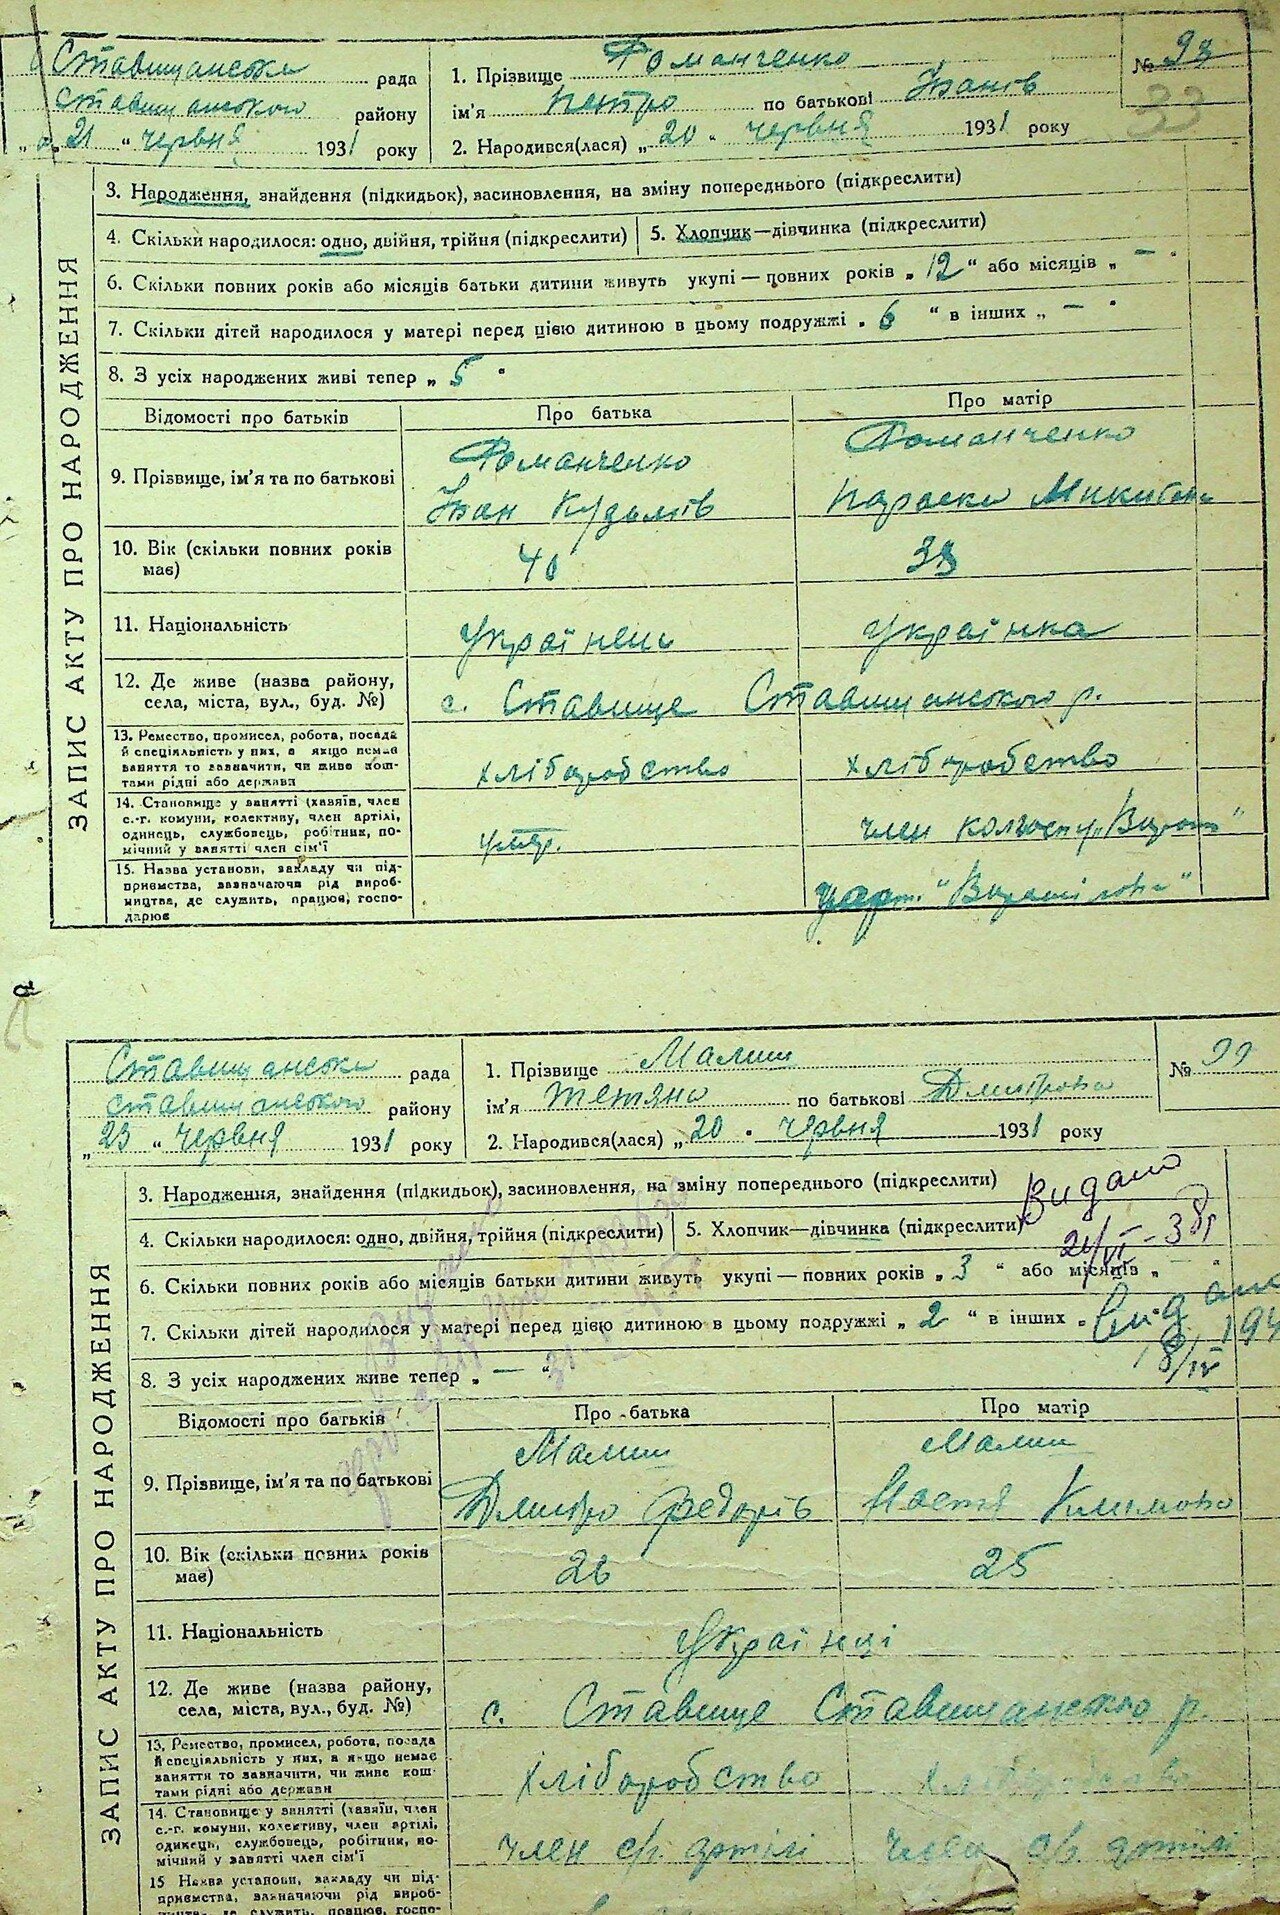 Ставищанська рада
Ставищанського району
"21" червня 1931 року
1. Прізвище Романченко
ім'я Петро по батькові Іванів
2. Народився(лася) "20" червня 1931 року
№ 98
33
ЗАПИС АКТУ ПРО НАРОДЖЕННЯ
3. Народження, знайдення (підкидьок), васиновлення, на зміну попереднього (підкреслити)
4. Скільки народилося: одно, двійня, трійня (підкреслити) 5. Хлопчик—дівчинка (підкреслити)
6. Скільки повних років або місяців батьки дитини живуть укупі — повних років "12" або місяців "—"
7. Скільки дітей народилося у матері перед цією дитиною в цьому подружжі "6" в інших "—"
8. З усіх народжених живі тепер "5"
Відомості про батьків Про батька Про матір
9. Прізвище, ім'я та по батькові
Романченко Романченко
Іван Кузьмів Параска Микитівна
10. Вік (скільки повних років має) 40 38
11. Національність Українець Українка
12. Де живе (назва району, села, міста, вул., буд. №)
с. Ставище Ставищанського р.
13. Ремество, промисел, робота, посада
й спеціяльність у них, а якщо немає
ваняття то зазначити, чи живе кош-
тами рідні або держава
хліборобство хліборобство
14. Становище у ванятті (хазяїн, член
с.-г. комуни, колективу, член артілі,
одинець, службовець, робітник, по-
мічний у ванятті член сім'ї
член колгоспу
15. Назва установи, закладу чи під-
приємства, вазначаючи рід вироб-
ництва, де служить, працює, госпо-
дарює
Ставищанська рада
Ставищанського району
"23" червня 1931 року
1. Прізвище Малиш
ім'я Тетяна по батькові Дмитрова
2. Народився(лася) "20" червня 1931 року
№ 99
ЗАПИС АКТУ ПРО НАРОДЖЕННЯ
3. Народження, знайдення (підкидьок), васиновлення, на зміну попереднього (підкреслити)
4. Скільки народилося: одно, двійня, трійня (підкреслити) 5. Хлопчик—дівчинка (підкреслити)
Видано
6. Скільки повних років або місяців батьки дитини живуть укупі — повних років "3" або місяців "—"
7. Скільки дітей народилося у матері перед цією дитиною в цьому подружжі "2" в інших "
8/IV
8. З усіх народжених живе тепер "—"
Відомості про батьків Про батька Про матір
9. Прізвище, ім'я та по батькові
Малиш Малиш
Дмитро Федорів Настя Климова
10. Вік (скільки повних років має) 26 25
11. Національність Українці
12. Де живе (назва району, села, міста, вул., буд. №)
с. Ставище Ставищанського р.
13. Ремество, промисел, робота, посада
й спеціяльність у них, а якщо немає
ваняття то зазначити, чи живе кош-
тами рідні або держави
хліборобство хліборобство
14. Становище у ванятті (хазяїн, член
с.-г. комуни, колективу, член артілі,
одинець, службовець, робітник, по-
мічний у ванятті член сім'ї
член с/г. артілі член с/г. артілі
15 Назва установи, закладу чи під-
приємства, вазначаючи рід вироб-
ництва, де служить, працює, госпо-